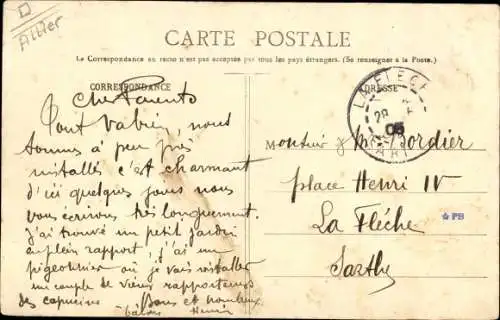 Allier
CARTE POSTALE
La Correspondance au recto n'est pas acceptée par tous les pays étrangers. (Se renseigner à la Poste.)
CORRESPONDANCE
Chers Parents
Tout va bien, nous
sommes à peu près
installés c'est charmant
d'ici quelques jours nous
vous écrirons très longuement.
J'ai trouvé un petit jardin
en plein rapport, j'ai un
pigeonnier où je vais installer
un couple de vieux rapporteurs
des capucins Bons et nombreux
baisers Henri
ADRESSE
LA FLECHE
28
05
SARTHE
Monsieur & Mme Bordier
place Henri IV
La Flèche
Sarthe
PB